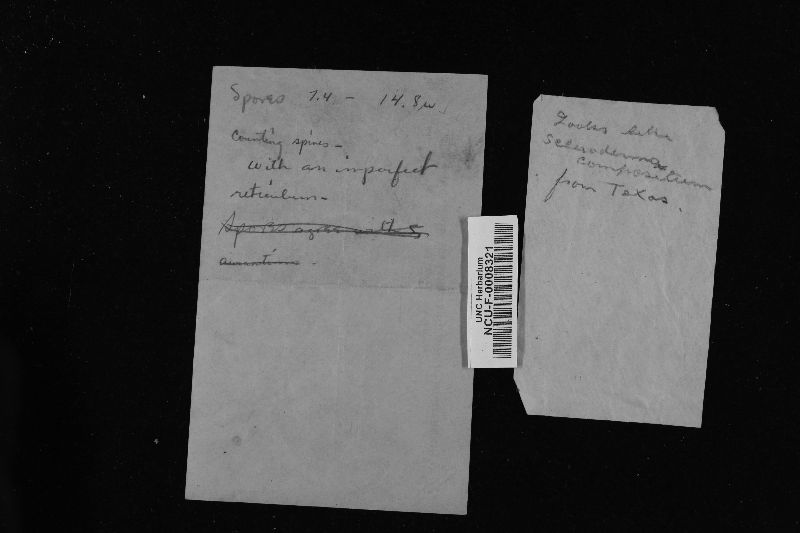 Spores 7.4 - 14.8 u
Counting spines -
with an imperfect
reticulum -
Spores agree with S
aurantium.
UNC Herbarium
NCU-F-0008321
Looks like
Scleroderma
compositum
from Texas.